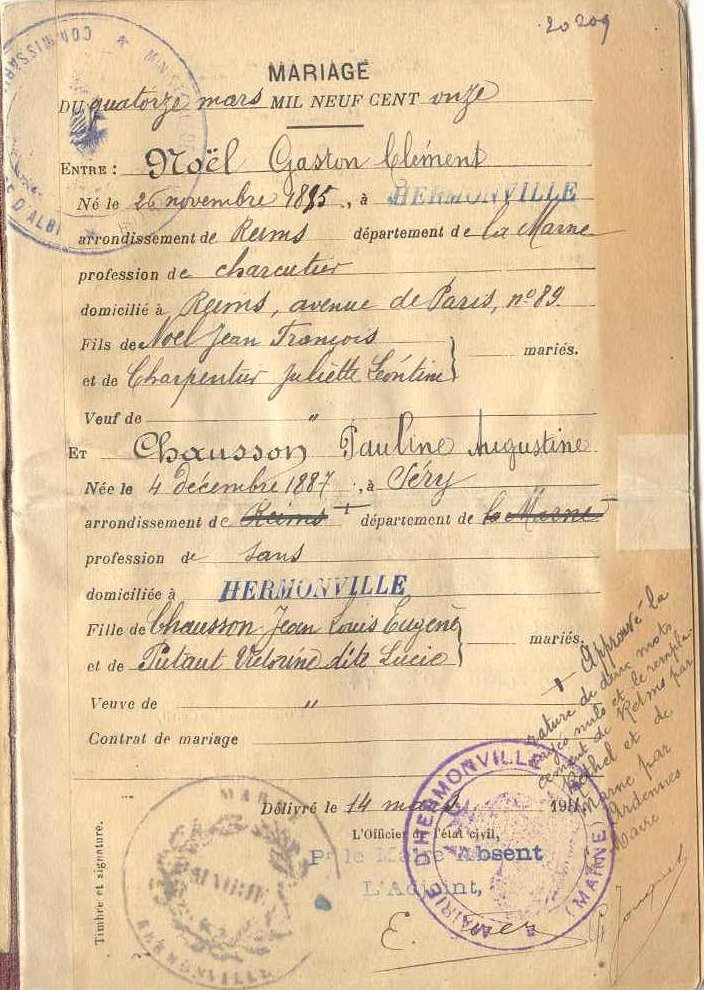 20209
MARIAGE
DU quatorze mars MIL NEUF CENT onze
ENTRE : Noël Gaston Clément
Né le 26 novembre 1885, à HERMONVILLE
arrondissement de Reims département de la Marne
profession de charcutier
domicilié à Reims, avenue de Paris, n° 89
Fils de Noël Jean François
et de Charpentier Juliette Léontine } mariés.
Veuf de "
ET Chausson Pauline Augustine
Née le 4 décembre 1887, à Séry
arrondissement de Reims + département de la Marne +
profession de sans
domiciliée à HERMONVILLE
Fille de Chausson Jean Louis Eugène
et de Putaut Victorine dite Lucie } mariés.
Veuve de "
Contrat de mariage
+ Approuvé la
rature de deux mots
rayés nuls et le rempla-
cement de Reims par
Rethel et de
Marne par
Ardennes
Délivré le 14 mars 1911
L'Officier de l'état civil,
Pr le Maire Absent
L'Adjoint,
Timbre et signature.
MAIRIE D'HERMONVILLE (MARNE)
MAIRIE
HERMONVILLE
COMMISSARI
D'ALBI